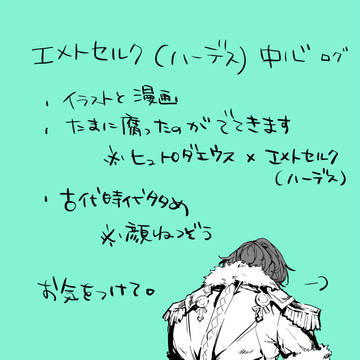 エメトセルク(ハーデス)中心ログ
・イラストと漫画
・たまに腐ったのがでてきます
※ヒュトロダエウス×エメトセルク
(ハーデス)
・古代時代多め
※顔ねつぞう
お気をつけて。